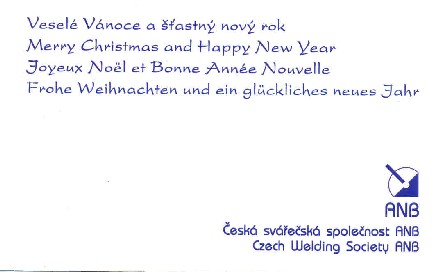 Veselé Vánoce a šťastný nový rok
Merry Christmas and Happy New Year
Joyeux Noël et Bonne Année Nouvelle
Frohe Weihnachten und ein glückliches neues Jahr
ANB
Česká svářečská společnost ANB
Czech Welding Society ANB